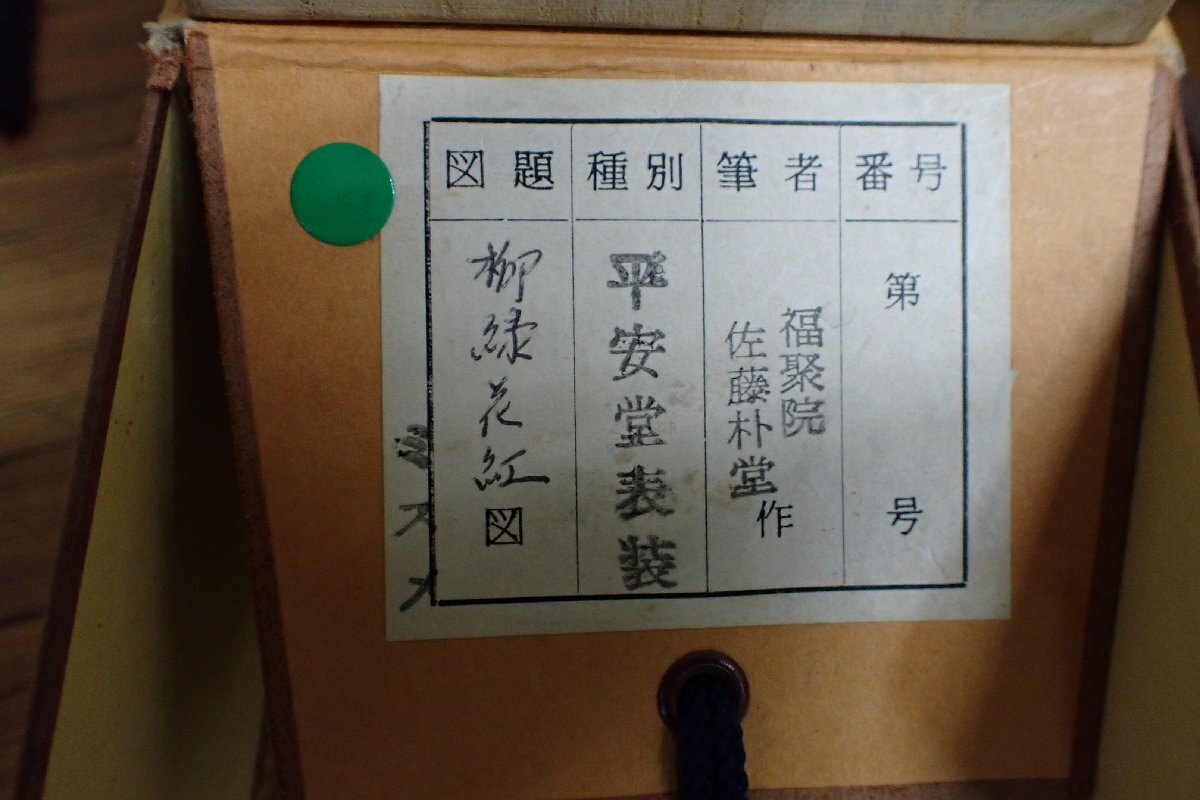 番号
第 号
筆者
福聚院
佐藤朴堂
作
種別
平安堂表装
図題
柳緑花紅図